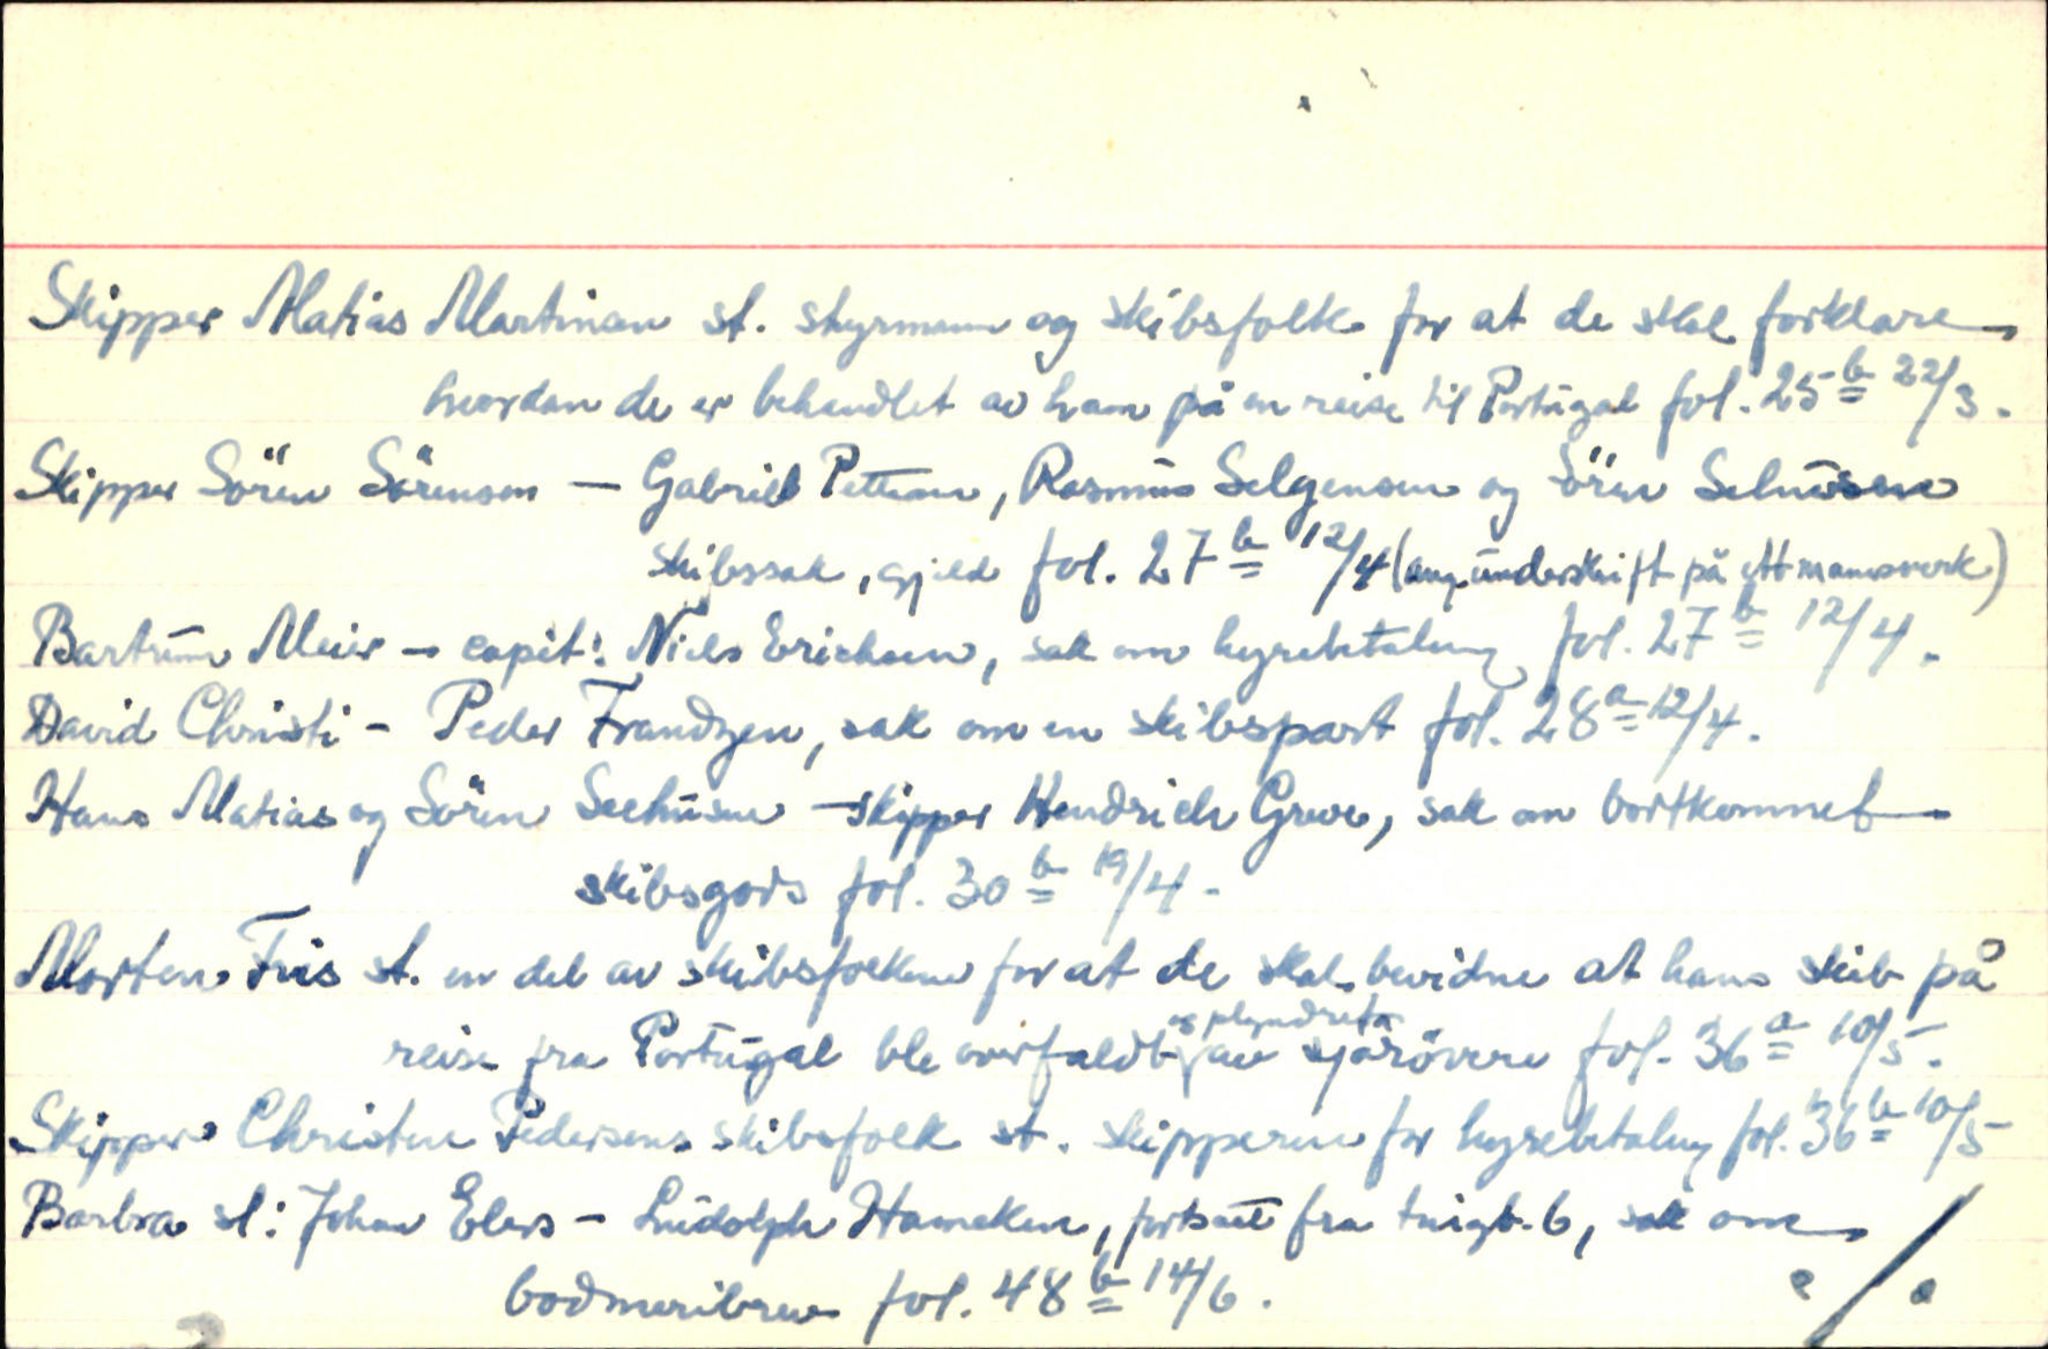 Skipper Matias Martinsen st. styrmann og skibsfolk for at de skal forklare
hvordan de er behandlet av ham på en reise til Portugal fol. 25 b 22/3.
Skipper Sören Sörensen — Gabriel Petterson, Rasmus Selgensen og Sören Sehusen
skibssak, gjeld fol. 27 b 12/4 (ang. underskrift på ett manesverk)
Bartrum Meier – capit: Niels Erichsen, sak om hyrebetaling fol. 27 b 12/4.
David Christi – Peder Frandzen, sak om en skibspart fol. 28 a 12/4.
Hans Matias og Sören Seehusen – skipper Hendrich Greve, sak om bortkommet
skibsgods fol. 30 b 19/4.
Morten Friis st. en del av skibsfolkene for at de skal bevidne at hans skib på
reise fra Portugal ble overfaldt og plyndret av sjørövere fol. 36 a 10/5.
Skipper Christen Pedersens skibsfolk st. skipperen for hyrebetaling fol. 36 b 10/5
Barbra sl: Johan Elers – Ludolph Hameken, fortsatt fra tingb. 6, sak om
bodmeribrev fol. 48 b 14/6.